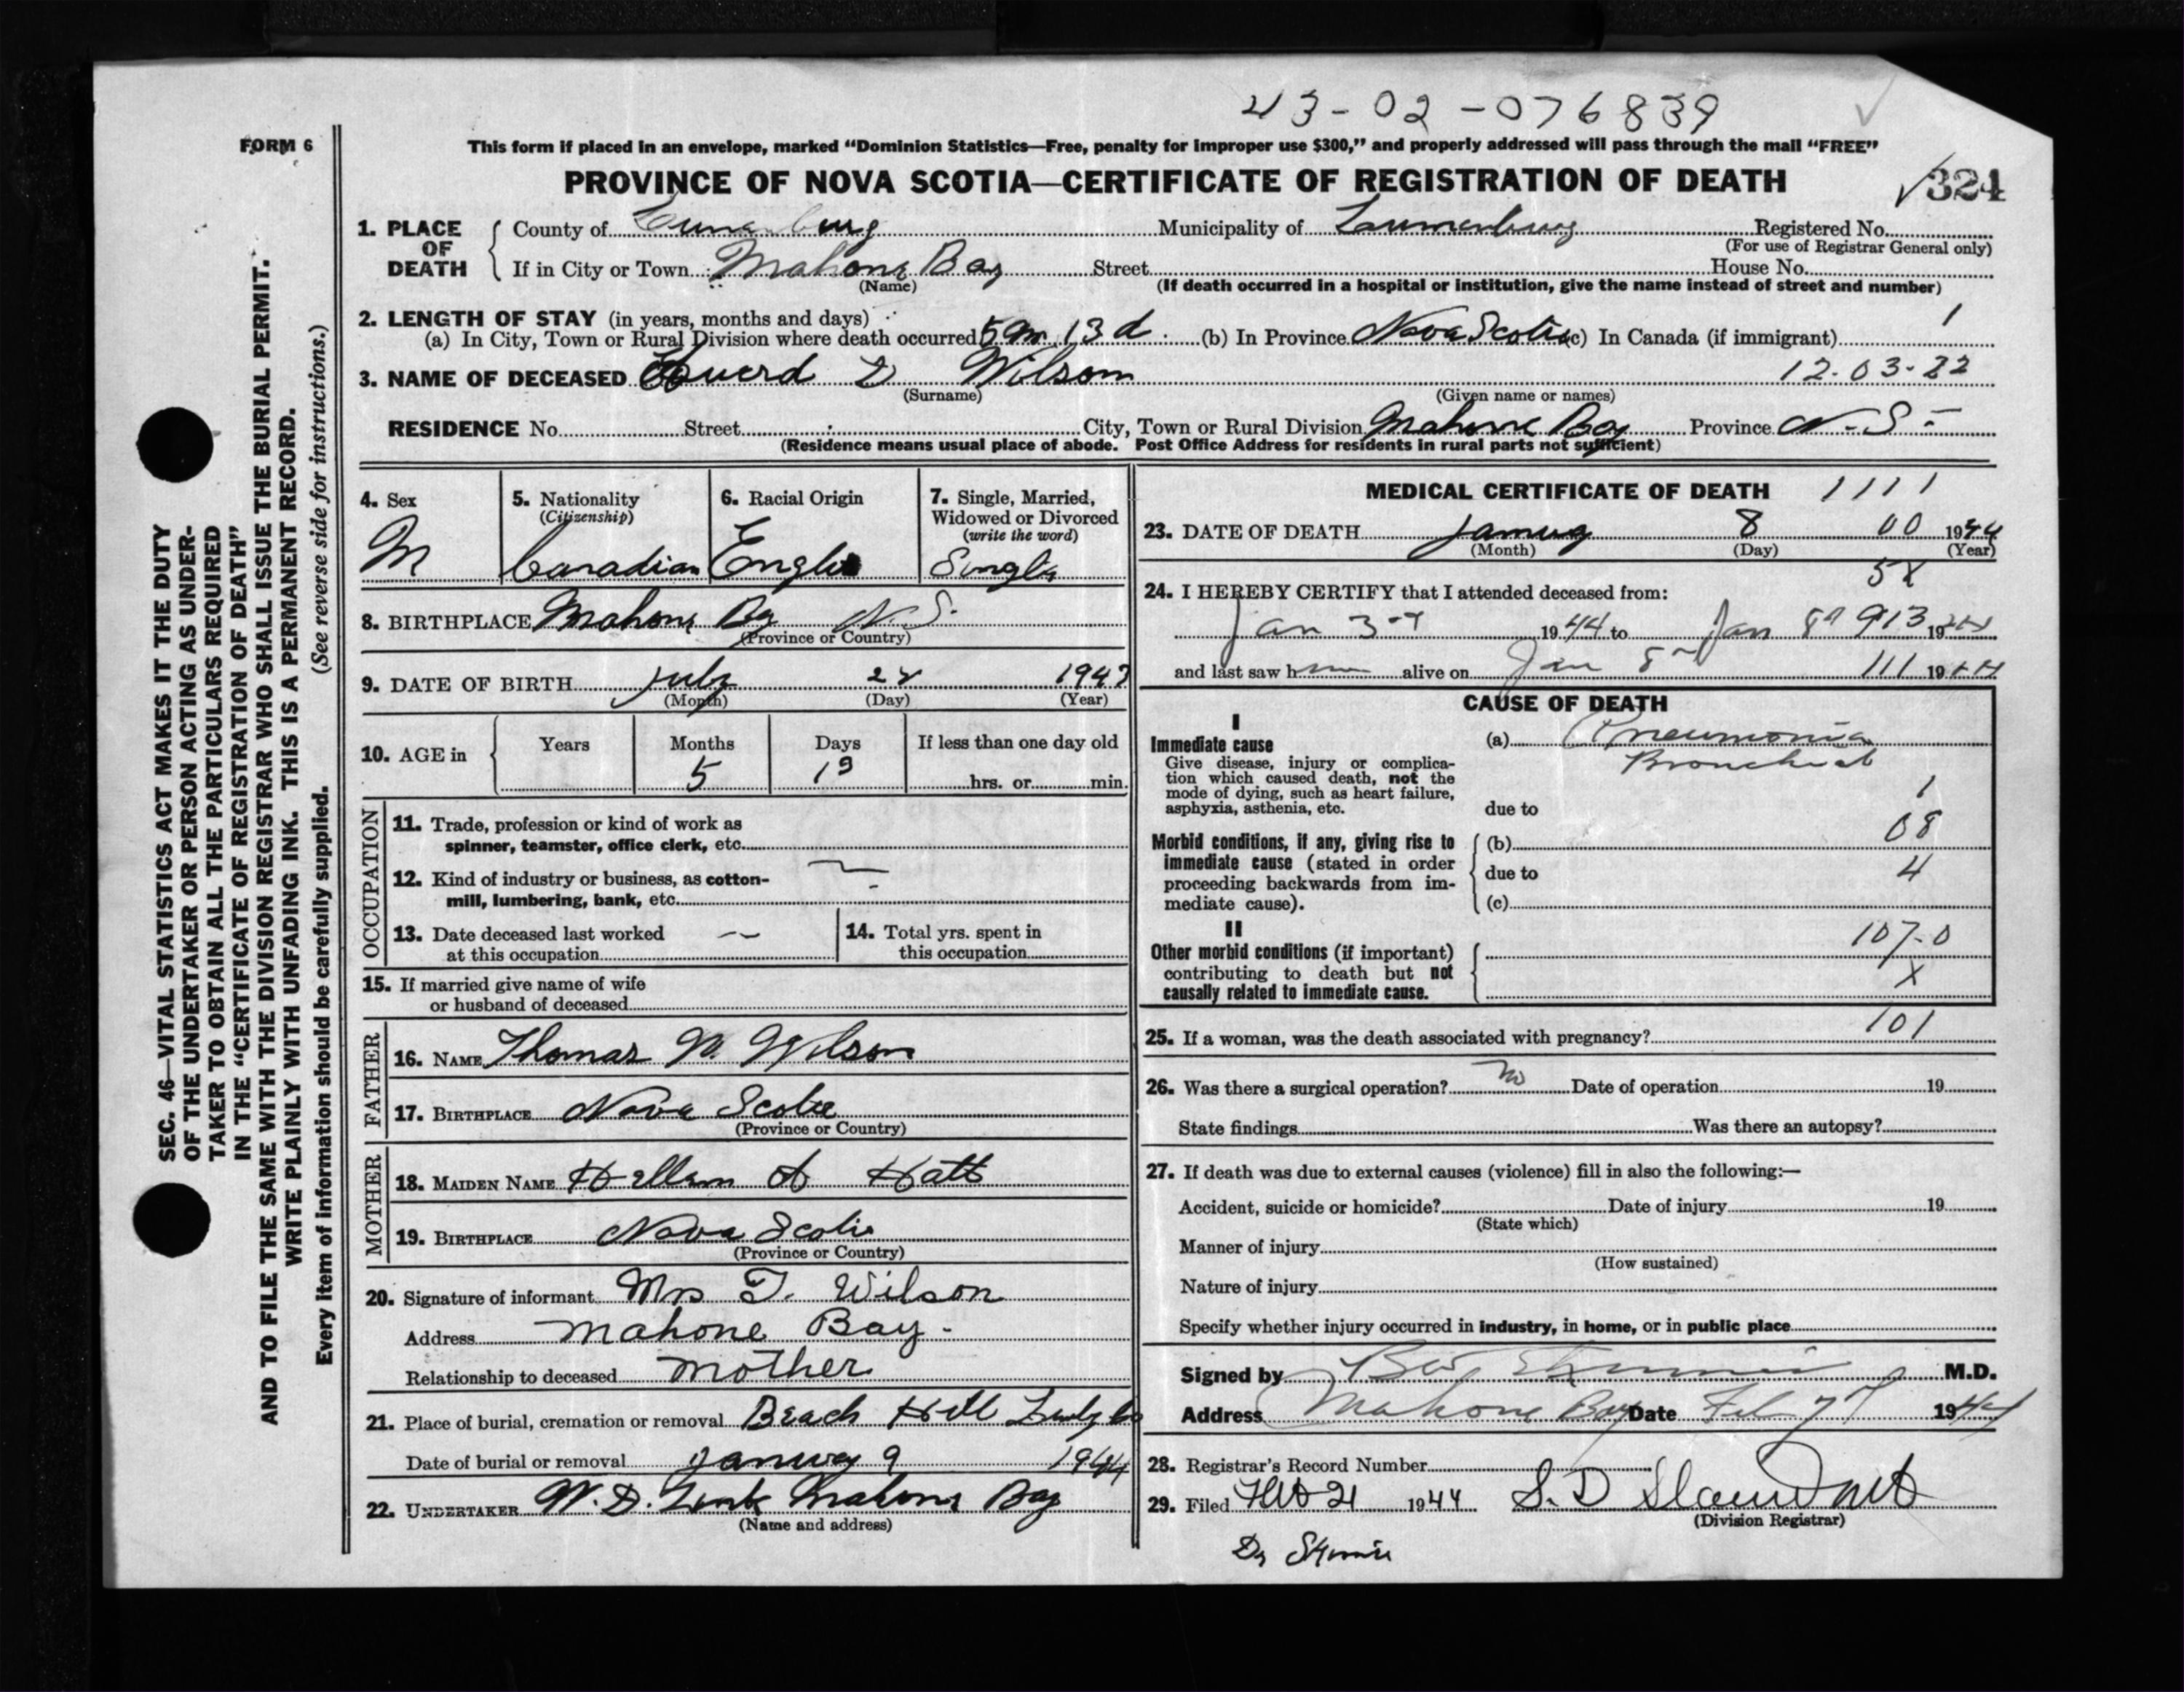 43-02-076839
FORM 6
This form if placed in an envelope, marked “Dominion Statistics—Free, penalty for improper use $300,” and properly addressed will pass through the mail “FREE”
PROVINCE OF NOVA SCOTIA—CERTIFICATE OF REGISTRATION OF DEATH
324
1. PLACE OF DEATH
County of Lunenburg Municipality of Lunenburg Registered No.
(For use of Registrar General only)
If in City or Town Mahone Bay Street House No.
(Name) (If death occurred in a hospital or institution, give the name instead of street and number)
2. LENGTH OF STAY (in years, months and days) 1
(a) In City, Town or Rural Division where death occurred 5 m 13 d. (b) In Province Nova Scotia (c) In Canada (if immigrant)
3. NAME OF DECEASED Wilson 12-03-22
(Surname) (Given name or names)
RESIDENCE No. Street City, Town or Rural Division Mahone Bay Province N.S-
(Residence means usual place of abode. Post Office Address for residents in rural parts not sufficient)
4. Sex
M
5. Nationality
(Citizenship)
Canadian
6. Racial Origin
7. Single, Married,
Widowed or Divorced
(write the word)
Single
8. BIRTHPLACE Mahone Bay N.S.
(Province or Country)
9. DATE OF BIRTH July
(Month) (Day) (Year)
10. AGE in
Years Months Days If less than one day old
5
hrs. or min.
OCCUPATION
11. Trade, profession or kind of work as
spinner, teamster, office clerk, etc.
12. Kind of industry or business, as cotton-
mill, lumbering, bank, etc.
13. Date deceased last worked
at this occupation
14. Total yrs. spent in
this occupation
15. If married give name of wife
or husband of deceased
FATHER
16. NAME Thomas Wilson
17. BIRTHPLACE Nova Scotia
(Province or Country)
MOTHER
18. MAIDEN NAME Hellen A Hatt
19. BIRTHPLACE Nova Scotia
(Province or Country)
20. Signature of informant Mrs T. Wilson
Address Mahone Bay.
Relationship to deceased mother
21. Place of burial, cremation or removal Beach Hill
Date of burial or removal January 9 1944
22. UNDERTAKER Mahone Bay
(Name and address)
MEDICAL CERTIFICATE OF DEATH 1111
23. DATE OF DEATH January 8 00 1944
(Month) (Day) (Year)
5X
24. I HEREBY CERTIFY that I attended deceased from:
Jan 3 1944 to Jan 8 913 1944
and last saw h alive on Jan 8 111 1944
CAUSE OF DEATH
I
Immediate cause
Give disease, injury or complica-
tion which caused death, not the
mode of dying, such as heart failure,
asphyxia, asthenia, etc.
(a) Pneumonia
Bronchial
1
due to
08
Morbid conditions, if any, giving rise to
immediate cause (stated in order
proceeding backwards from im-
mediate cause).
(b)
due to 4
(c)
II
107-0
Other morbid conditions (if important)
contributing to death but not
causally related to immediate cause.
X
101
25. If a woman, was the death associated with pregnancy?
26. Was there a surgical operation? no Date of operation 19
State findings Was there an autopsy?
27. If death was due to external causes (violence) fill in also the following:—
Accident, suicide or homicide? Date of injury 19
(State which)
Manner of injury
(How sustained)
Nature of injury
Specify whether injury occurred in industry, in home, or in public place
Signed by M.D.
Address Mahone Bay Date Feb 1944
28. Registrar's Record Number
29. Filed Feb 21 1944 S. D
(Division Registrar)
Dr
SEC. 46—VITAL STATISTICS ACT MAKES IT THE DUTY
OF THE UNDERTAKER OR PERSON ACTING AS UNDER-
TAKER TO OBTAIN ALL THE PARTICULARS REQUIRED
IN THE “CERTIFICATE OF REGISTRATION OF DEATH”
AND TO FILE THE SAME WITH THE DIVISION REGISTRAR WHO SHALL ISSUE THE BURIAL PERMIT.
WRITE PLAINLY WITH UNFADING INK. THIS IS A PERMANENT RECORD.
Every item of information should be carefully supplied. (See reverse side for instructions.)